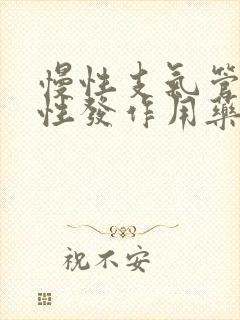 慢性支气管
性發作用藥
祝不安